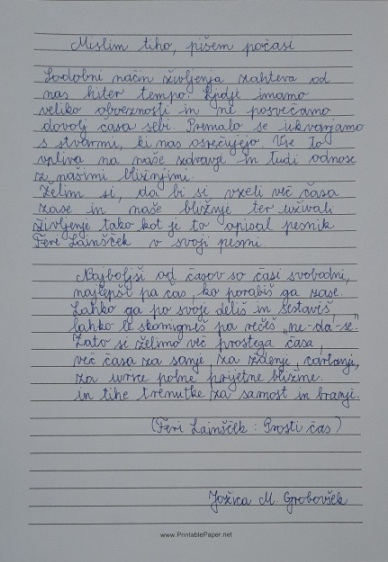 Mislim tiho, pišem počasi
Sodobni način življenja zahteva od
nas hiter tempo. Ljudje imamo
veliko obveznosti in ne posvečamo
dovolj časa sebi. Premalo se ukvarjamo
s stvarmi, ki nas osrečujejo. Vse to
vpliva na naše zdravje in tudi odnose
z našimi bližnjimi.
Želim si, da bi si vzeli več časa
zase in naše bližnje ter uživali
življenje tako kot je to opisal pesnik
Feri Lainšček v svoji pesmi.
Najboljši od časov so časi svobodni,
najlepši pa čas, ko porabiš ga zase.
Lahko ga po svoje deliš in sestaviš,
lahko le skomigneš pa rečeš „ne da se“.
Zato si želimo več prostega časa,
več časa za sanje, za zdenje, čarlanje,
za urice polne prijetne bližine
in tihe trenutke za samost in branje.
(Feri Lainšček: Prosti čas)
Jožica M. Grobovšek
www.PrintablePaper.net